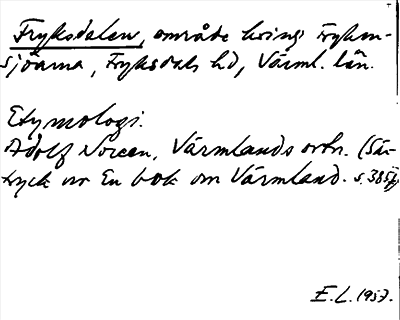 Fryksdalen, område kring Fryken-
sjöarna, Fryksdals hd, Värml. län.
Etymologi.
Adolf Noreen, Värmlands ortn. (Sär-
tryck ur En bok om Värmland. s. 385 f)
E.L. 1957.